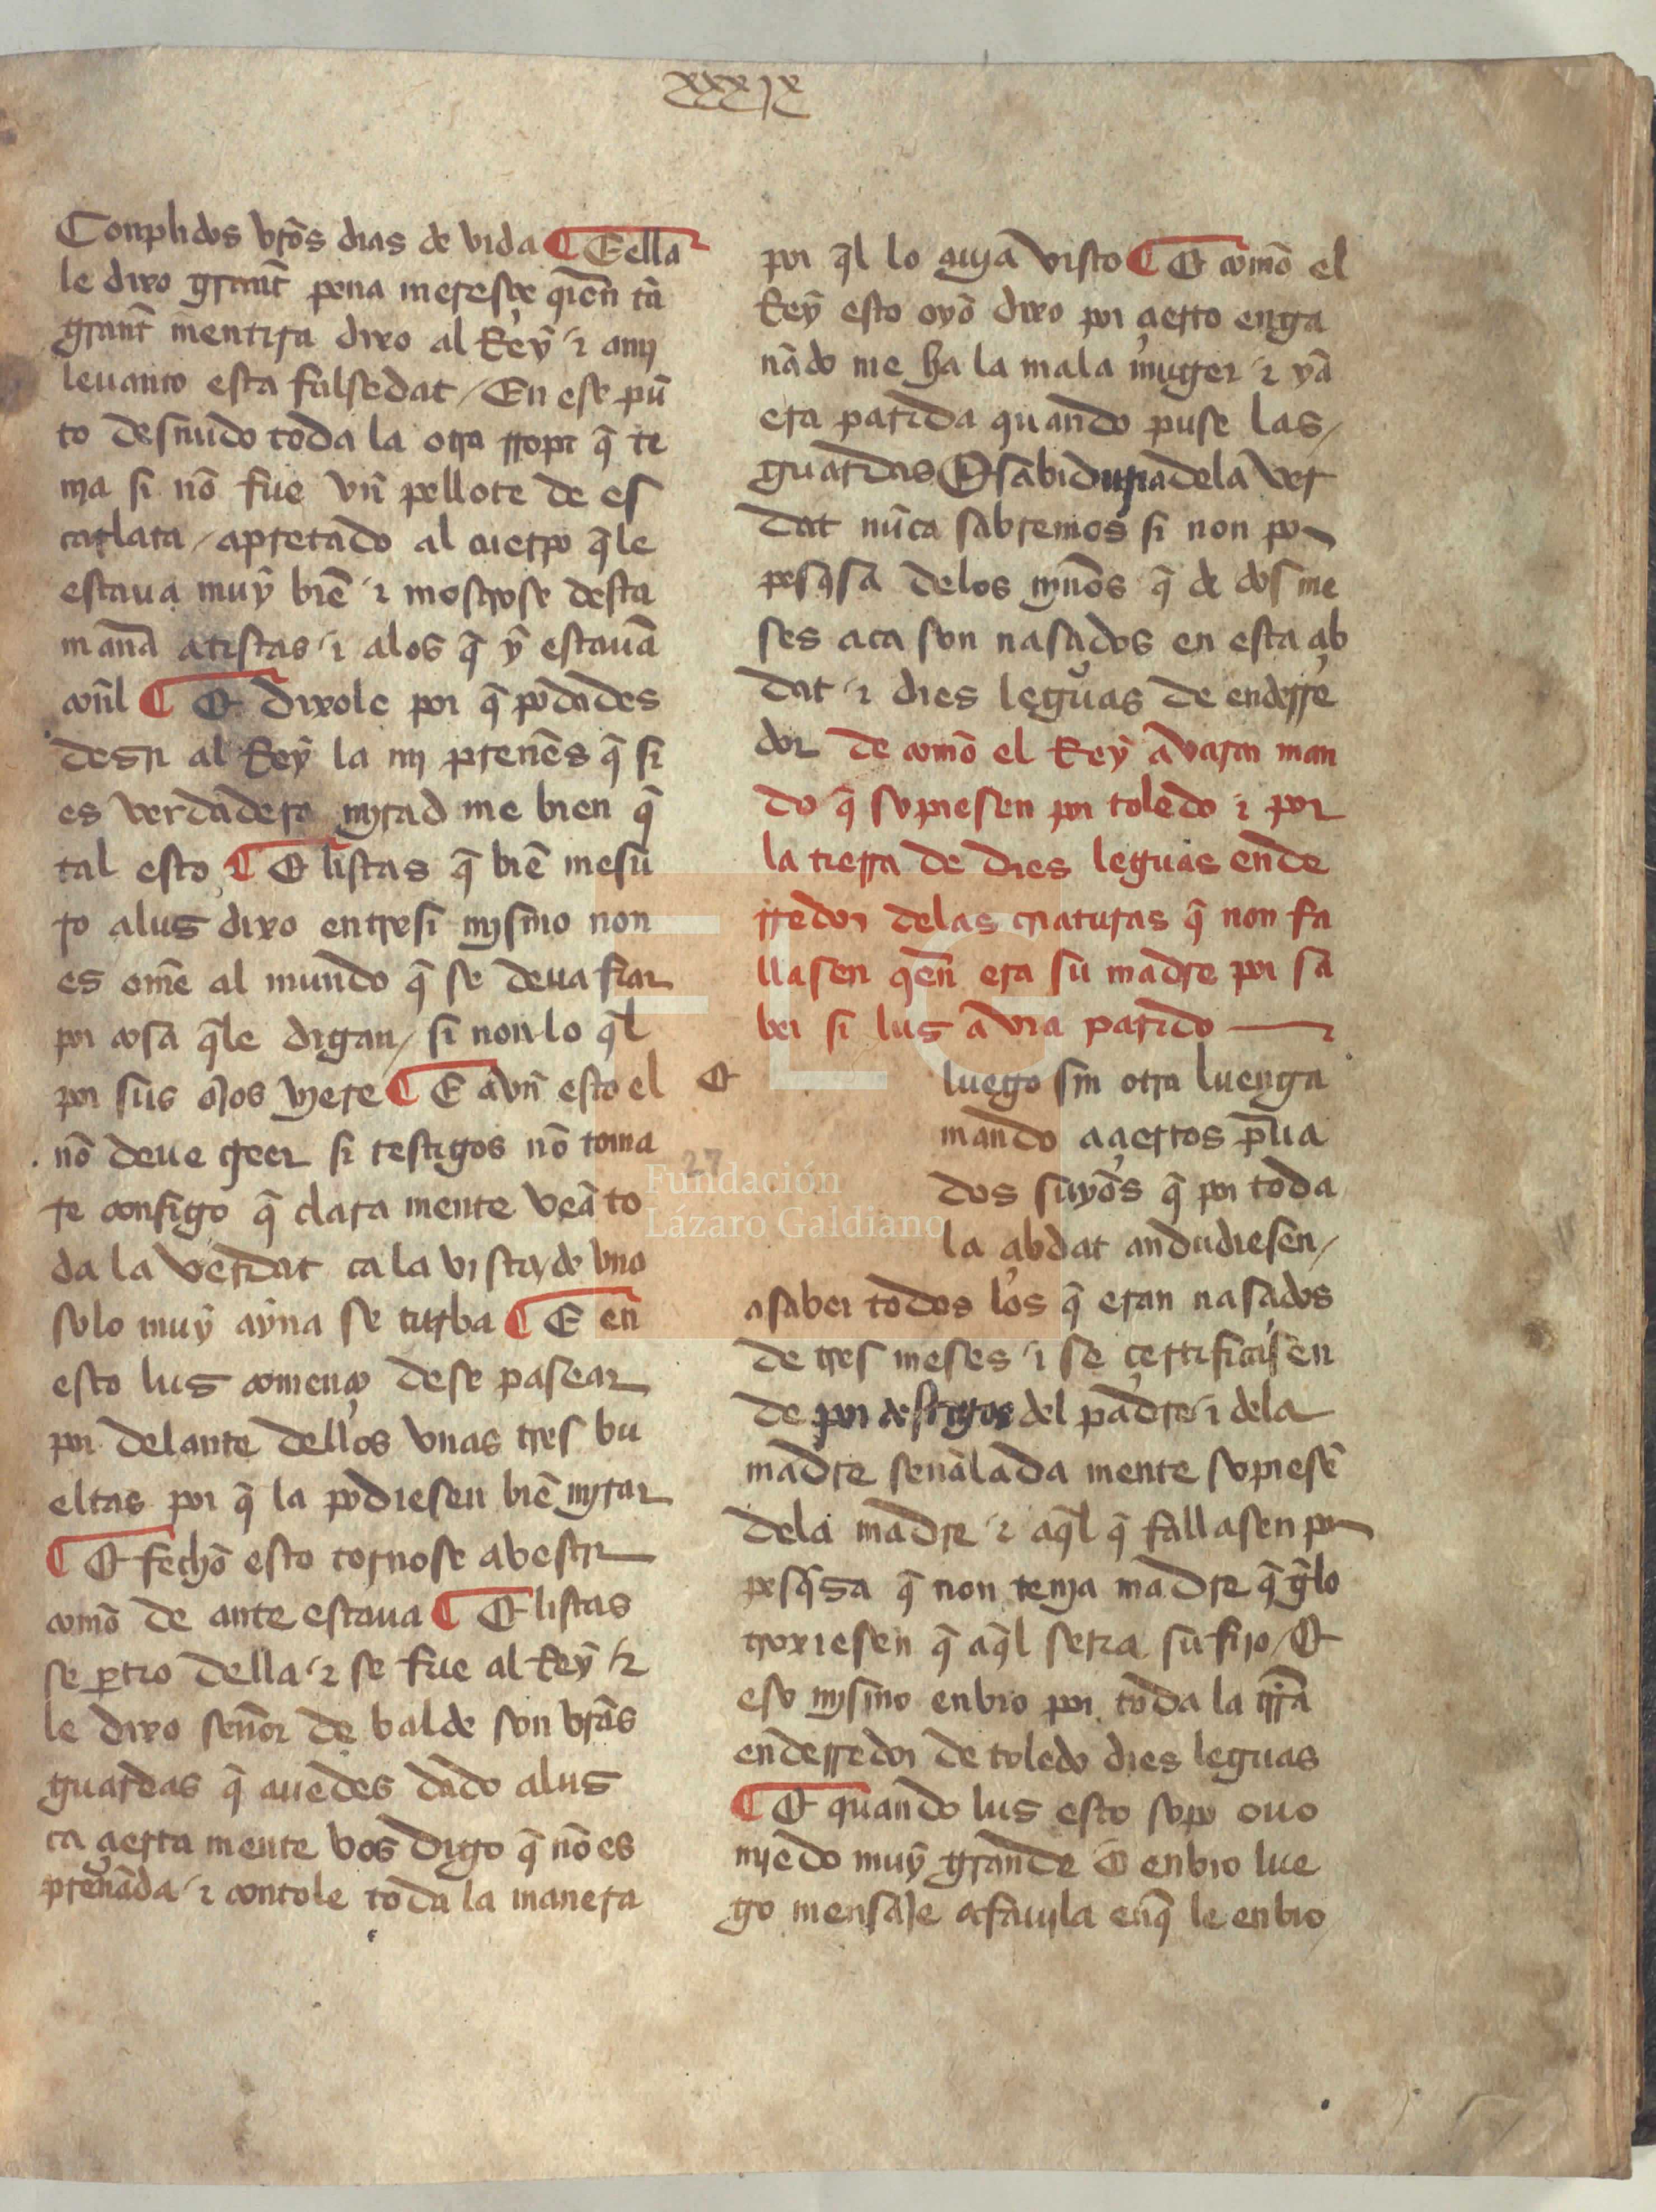 xxxix
Conplidos vr̃os dias de vida ¶ E ella
le dixo grant pena meresçe qien tã
grant mentira dixo al Rey ⁊ a my
leuanto esta falsedat / En ese pũ
to desnudo toda la otra rropa q̃ te
nia si nõ fue vn pellote de es
carlata / apretado al cuerpo q̃le
estaua muy biẽ ⁊ mostrose desta
manã atistas ⁊ alos q̃ y estauã
conl ¶ Et dixole por q̃ podades
desir al Rey la mi preñes q̃ si
es verdadera myrad me bien q̃
tal esto ¶ Et listas q̃ biẽ mesu
ro alus dixo entresi mismo non
es om̃e al mundo q̃ se deua fiar
por cosa q̃le digan / si non lo q̃l
por sus ojos viere ¶ E avn esto el
nõ deue creer si testigos nõ toma
re consigo q̃ clara mente veã to
da la verdat ca la vista de vno
solo muy ayna se turba ¶ E en
esto lus començo dese pasear
por delante dellos vnas tres bu
eltas por q̃ la podiesen biẽ myrar
¶ Et fecho esto tornose abestir
comõ de ante estaua ¶ Et listas
se ptio della ⁊ se fue al Rey ⁊
le dixo señor de balde son vr̃as
guardas q̃ auedes dado alus
ca çierta mente vos digo q̃ nõ es
preñada ⁊ contole toda la manera
por q̃l lo auya visto ¶ Et comõ el
Rey esto oyo dixo por çierto enga
ñado me ha la mala muger ⁊ ya
era parida quando puse las /
guardas Et sabiduria dela ver
dat nũca sabremos si non por
pesq̃sa delos niños q̃ de dos me
ses aca son nasçidos en esta çib
dat ⁊ dies leguas de enderre
dor de comõ el Rey avarca man
do q̃ sopiesen por toledo ⁊ por
la tierra de dies leguas ende
rredor delas criaturas q̃ non fa
llasen qen era su madre por sa
ber si lus avia parido
Et luego sin otra luenga
mando a çiertos p̃ua
dos suyos q̃ por toda
la çibdat andudiesen /
a saber todos los q̃ eran nasçidos
de tres meses ⁊ se çertificasen
de por testigos del padre ⁊ dela
madre señalada mente sopiesẽ
dela madre ⁊ aq̃l q̃ fallasen por
pesq̃sa q̃ non tenia madre q̃ g̃lo
troxiesen q̃ aq̃l seria su fijo / Et
eso mismo enbio por toda la trr̃a
enderredor de toledo dies leguas
¶ Et quando lus esto sopo ouo
miedo muy grande E enbio lue
go mensaje a fauila enq̃ le enbio
27
FLG
Fundación
Lázaro Galdiano